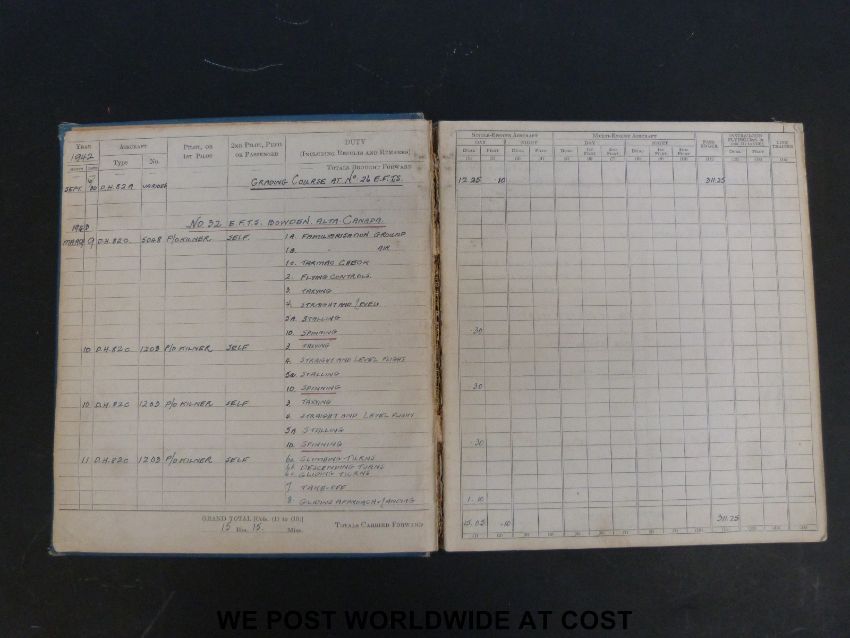 YEAR AIRCRAFT PILOT, OR 1ST PILOT 2ND PILOT, PUPIL OR PASSENGER DUTY (INCLUDING RESULTS AND REMARKS)
1942 Type No.
TOTALS BROUGHT FORWARD
SEPT. D.H.82A VARIOUS GRADING COURSE AT No 26 E.F.T.S.
NO. 32 E.F.T.S. BOWDEN. ALTA. CANADA
MARCH 9 D.H.82C 5048 P/O KILNER SELF. 1A FAMILIARISATION GROUND
1B " AIR
1C TARMAC CHECK
2. FLYING CONTROLS.
3. TAXYING
4. STRAIGHT AND LEVEL
5A STALLING
10. SPINNING
10 D.H.82C 1203 P/O KILNER SELF 3 TAXYING
4. STRAIGHT AND LEVEL FLIGHT
5A STALLING
10 SPINNING
10 D.H.82C 1203 P/O KILNER SELF 3 TAXYING
4 STRAIGHT AND LEVEL FLIGHT
5A STALLING
10. SPINNING
11 D.H.82C 1203 P/O KILNER SELF 6A CLIMBING TURNS
6B DESCENDING TURNS
6C GLIDING TURNS
7 TAKE-OFF
8 GLIDING APPROACH & LANDING
GRAND TOTAL [Cols. (1) to (10)]
15 Hrs. 15. Mins. TOTALS CARRIED FORWARD
SINGLE-ENGINE AIRCRAFT MULTI-ENGINE AIRCRAFT PASS-ENGER
DAY NIGHT DAY NIGHT
DUAL PILOT DUAL PILOT DUAL 1ST PILOT 2ND PILOT DUAL 1ST PILOT 2ND PILOT DUAL PILOT
(1) (2) (3) (4) (5) (6) (7) (8) (9) (10) (11) (12) (13) (14)
12.25 .10 311.25
.30
.30
.30
1.10
15.05 .10 311.25
(1) (2) (3) (4) (5) (6) (7) (8) (9) (10) (11) (12) (13) (14)
WE POST WORLDWIDE AT COST